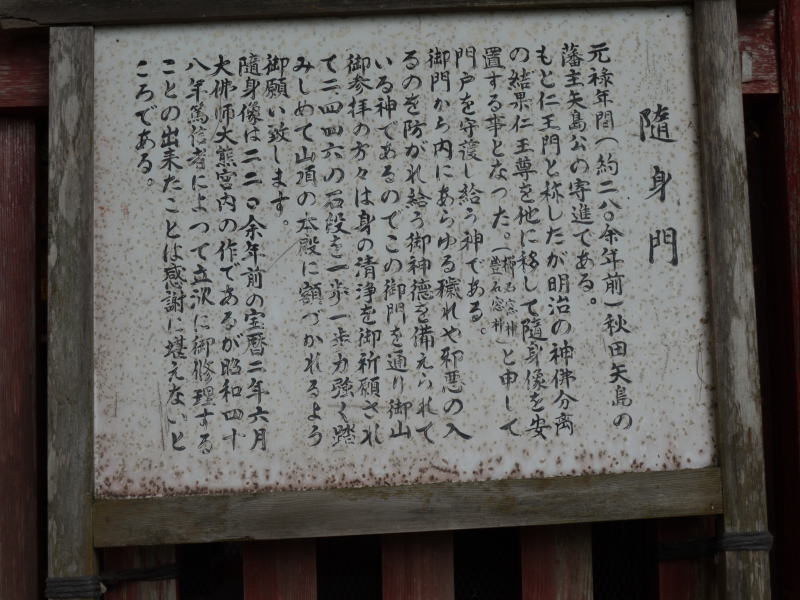 隨身門
元禄年間(約二八〇余年前)秋田矢島の
藩主矢島公の寄進である。
もと仁王門と称したが明治の神佛分离
の結果仁王尊を他に移して隨身像を安
置する事となった。(櫛石窓神 豊石窓神)と申して
門戸を守護し給う神である。
御門から内にあらゆる穢れや邪悪の入
るのを防がれ給う御神徳を備えられて
いる神であるのでこの御門を通り御山
御参拝の方々は身の清浄を御祈願され
て二四四六の石段を一歩一歩力強く踏
みしめて山頂の本殿に額づかれるよう
御願い致します。
隨身像は二二〇余年前の宝暦二年六月
大佛師大熊宮内の作であるが昭和四十
八年篤信者によって立派に御修理する
ことの出来たことは感謝に堪えないと
ころである。